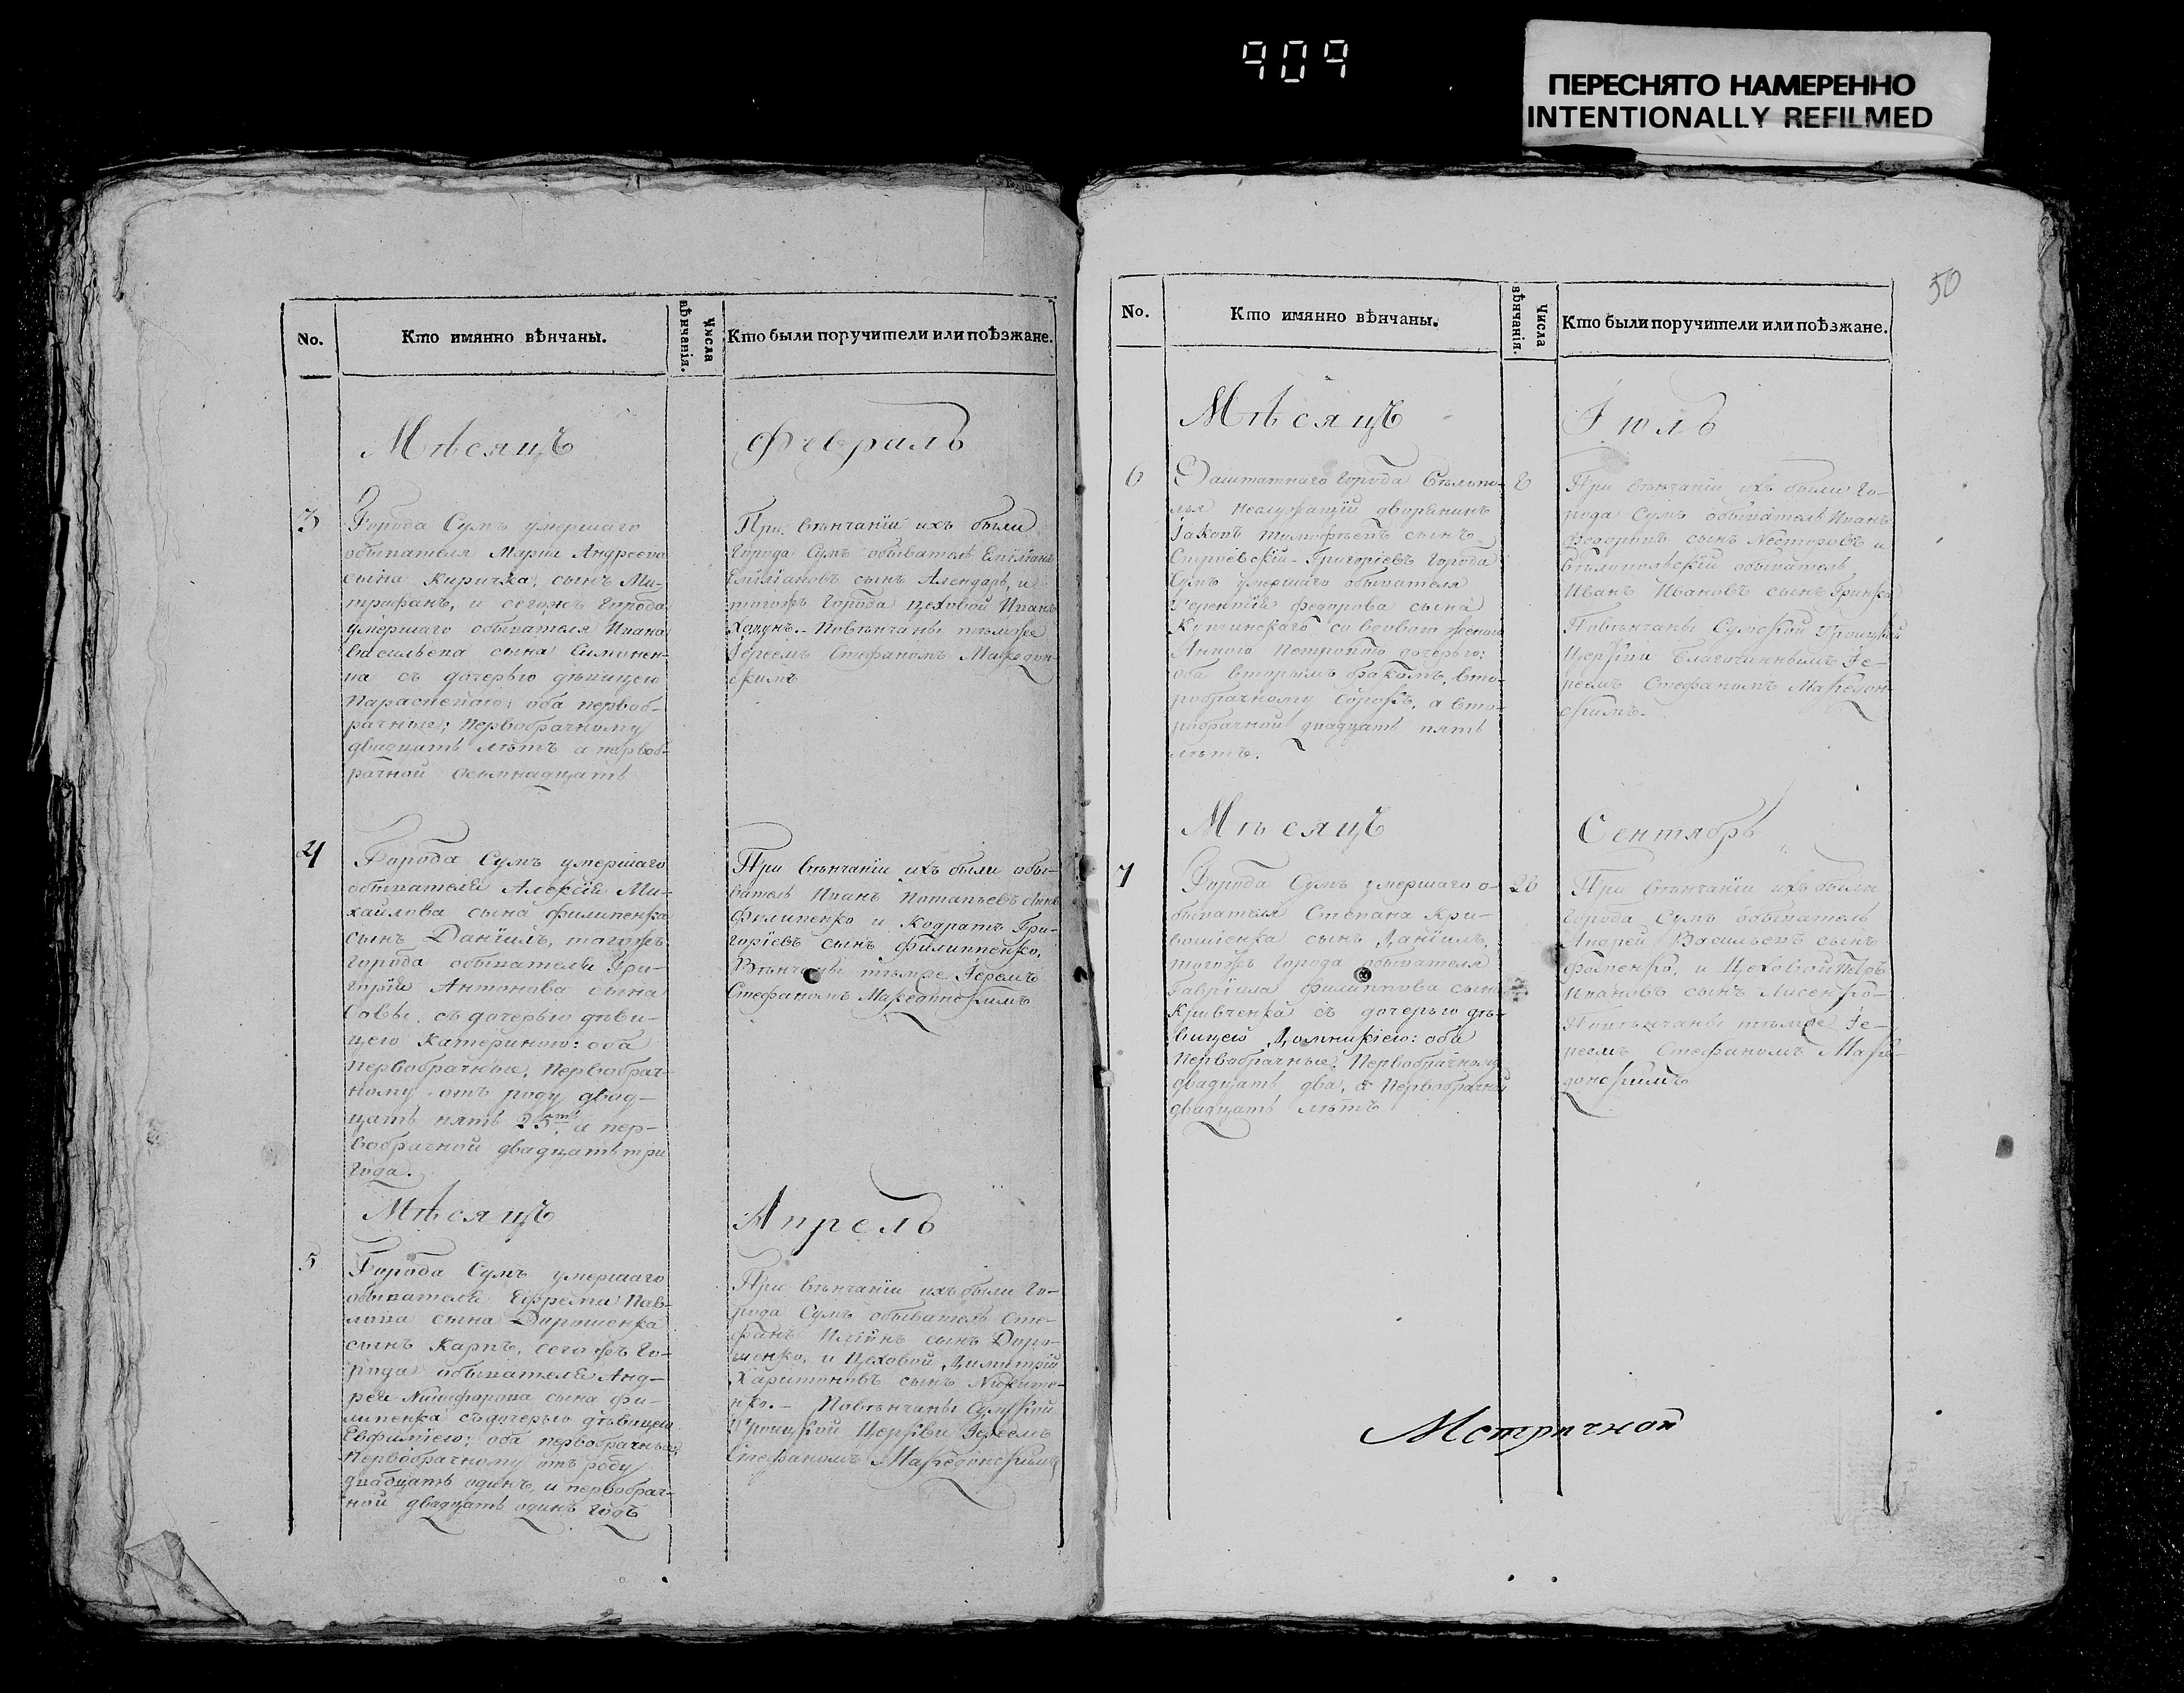 909
ПЕРЕСНЯТО НАМЕРЕННО
INTENTIONALLY REFILMED
No.
Кто имянно вѣнчаны.
Числа вѣнчанія.
Кто были поручители или поѣзжане.
Мѣсяцъ
Февраль
3
Города Сумъ умершаго
обывателя Марка Андреева
сына Киричка, сынъ Ми-
трофанъ, и сегожъ города
умершаго обывателя Ивана
Васильева сына Симонен-
ка съ дочерью дѣвицею
Параскевіею; оба первоб-
рачные; Первобрачному
двадцать лѣтъ а первоб-
рачной осьмнадцать
При вѣнчаніи ихъ были
города Сумъ обыватель Епіѳанъ
Епіѳановъ сынъ Алендарь, и
тогожъ города цеховой Иванъ
Хопунъ. - Повѣнчаны тѣмже
Іереемъ Стефаномъ Македон-
скимъ
4
Города Сумъ умершаго
обывателя Алексѣя Ми-
хайлова сына Филипенка
сынъ Даніилъ, тогожъ
города обывателя Гри-
горія Антонова сына
Савы, съ дочерью дѣви-
цею Катериною: оба
первобрачные, Первобрач-
ному отъ роду двад-
цать пять 25ть а пер-
вобрачной двадцать три
года.
При вѣнчаніи ихъ были обы-
ватель Иванъ Потапьевъ сынъ
Филипенко и Кодратъ Гри-
горіевъ сынъ Филиппенко,
Вѣнчаны тѣмже Іереемъ
Стефаномъ Македонскимъ
Мѣсяцъ
Апрель
5
Города Сумъ умершаго
обывателя Ефрема Пав-
лова сына Дорошенка
сынъ Карпъ, сегожъ го-
рода обывателя Анд-
рея Никифорова сына Фи-
липенка съ дочерью дѣвицею
Евфиміею; оба первобрачные;
Первобрачному отъ роду
двадцать одинъ, и первобрач-
ной двадцать одинъ годъ
При вѣнчаніи ихъ были го-
рода Сумъ обыватель Сте-
фанъ Ильинъ сынъ Доро-
шенко, и Цеховой Димитрій
Харитоновъ сынъ Никите-
нко. - Повѣнчаны Сумской
Троицкой Церкви Іереемъ
Стефаномъ Македонскимъ
50
No.
Кто имянно вѣнчаны.
Числа вѣнчанія.
Кто были поручители или поѣзжане.
Мѣсяцъ
Іюль
6
Заштатнаго города Бѣлопо-
лья неслужащій дворянинъ
Іаковъ Тимофѣевъ сынъ
Григоріевъ города
Сумъ умершаго обывателя
Терентія Федорова сына
Купчинскаго со вдовою женою
Анною Петровою дочерью:
оба вторымъ бракомъ, вто-
робрачному сорокъ, а вто-
робрачной двадцать пять
лѣтъ.
8
При вѣнчаніи ихъ были го-
рода Сумъ обыватель Иванъ
Феодоровъ сынъ Несторовъ и
бѣлопольскій обыватель
Иванъ Ивановъ сынъ
Повѣнчаны Сумской Троицкой
Церкви Благочиннымъ Іе-
реемъ Стефаномъ Македон-
скимъ.
Мѣсяцъ
Сентябрь
7
Города Сумъ умершаго о-
бывателя Степана Кри-
вошіенка сынъ Даніилъ,
тогожъ города обывателя
Гавріила Филиппова сына
Кривченка съ дочерью дѣ-
вицею Домникіею: оба
первобрачные, Первобрачному
двадцать два, а Первобрачной
двадцать лѣтъ
При вѣнчаніи ихъ были
города Сумъ обыватель
Андрей Васильевъ сынъ
Фоменко, и Цеховой Петръ
Ивановъ сынъ Лисенко-
Повѣнчаны тѣмже Іе-
реемъ Стефаномъ Маке-
донскимъ
Метричной